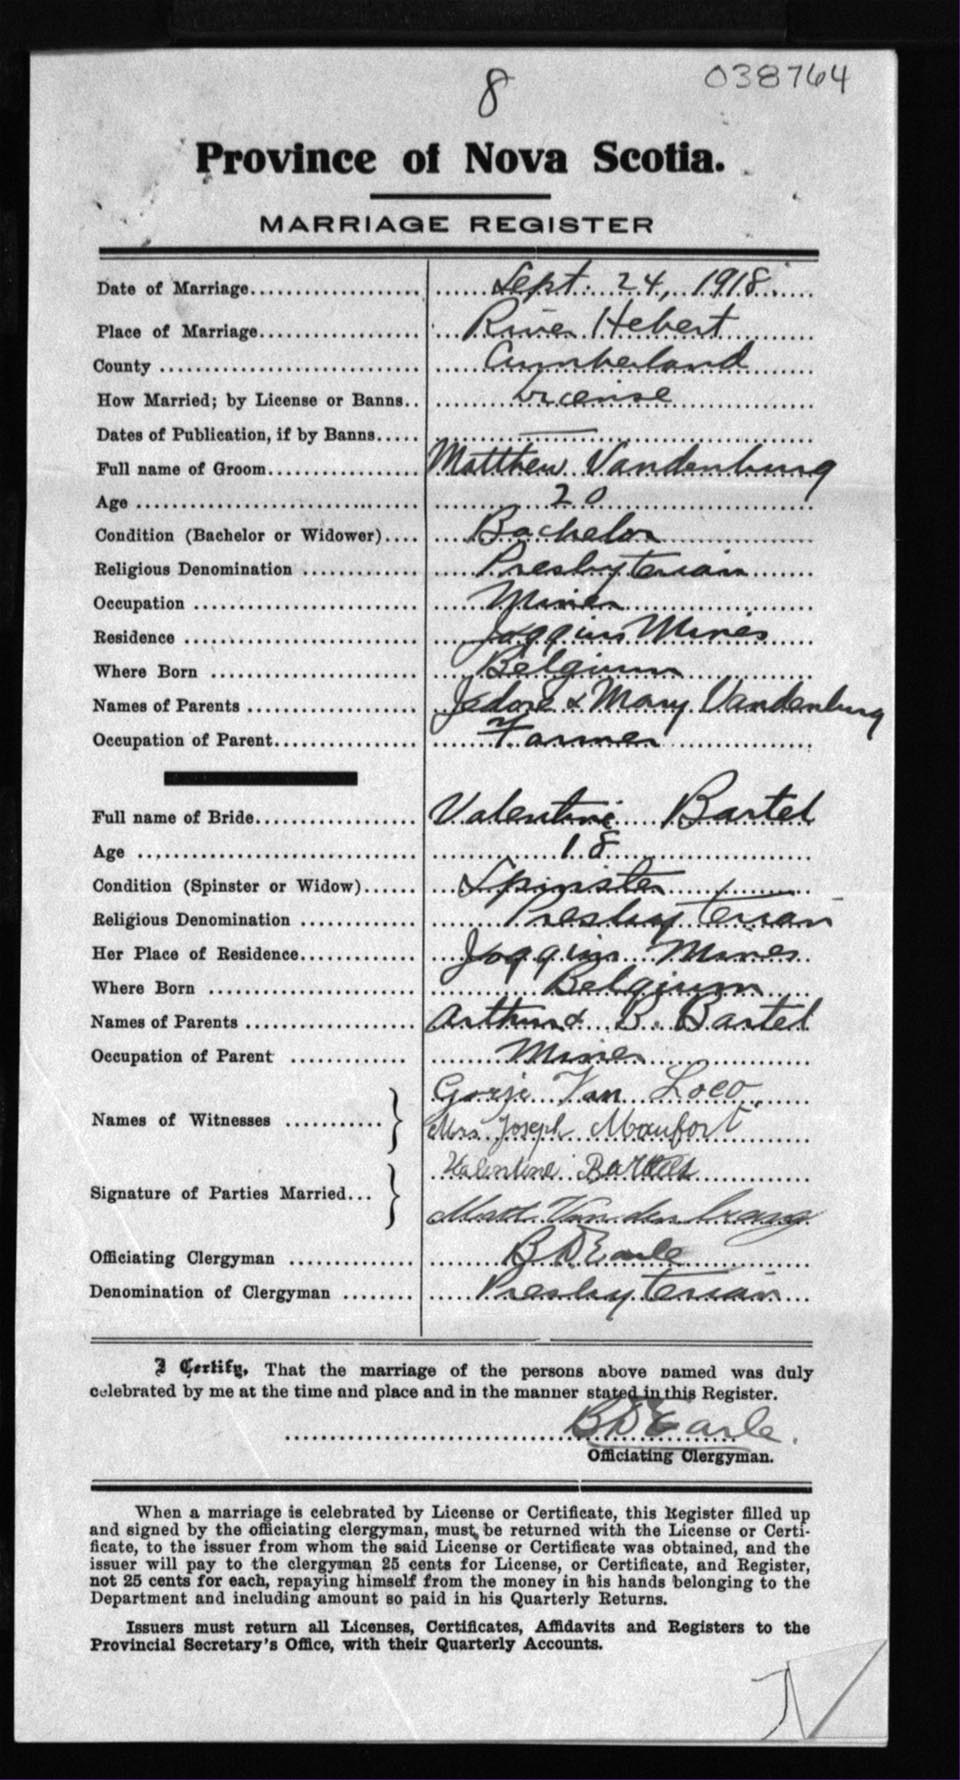 038764
8
Province of Nova Scotia.
MARRIAGE REGISTER
Date of Marriage.................... Sept. 24, 1918.
Place of Marriage................... River Hebert
County .............................. Cumberland
How Married; by License or Banns.. License
Dates of Publication, if by Banns..... —
Full name of Groom.................. Matthew Vandenburg
Age .................................. 20
Condition (Bachelor or Widower).... Bachelor
Religious Denomination .............. Presbyterian
Occupation .......................... Miner
Residence ........................... Joggins Mines
Where Born .......................... Belgium
Names of Parents .................... Jedore & Mary Vandenburg
Occupation of Parent................. Farmer
Full name of Bride................... Valentine Bartel
Age .................................. 18
Condition (Spinster or Widow)...... Spinster
Religious Denomination .............. Presbyterian
Her Place of Residence............... Joggins Mines
Where Born .......................... Belgium
Names of Parents .................... Arthur & B. Bartel
Occupation of Parent ............. Miner
Names of Witnesses ........... } Van Loco
Mrs Joseph Monfort
Signature of Parties Married... } Valentine
Matt
Officiating Clergyman .............. B D Earle
Denomination of Clergyman ........ Presbyterian
I Certify, That the marriage of the persons above named was duly
celebrated by me at the time and place and in the manner stated in this Register.
B D Earle.
Officiating Clergyman.
When a marriage is celebrated by License or Certificate, this Register filled up
and signed by the officiating clergyman, must be returned with the License or Certi-
ficate, to the issuer from whom the said License or Certificate was obtained, and the
issuer will pay to the clergyman 25 cents for License, or Certificate, and Register,
not 25 cents for each, repaying himself from the money in his hands belonging to the
Department and including amount so paid in his Quarterly Returns.
Issuers must return all Licenses, Certificates, Affidavits and Registers to the
Provincial Secretary's Office, with their Quarterly Accounts.